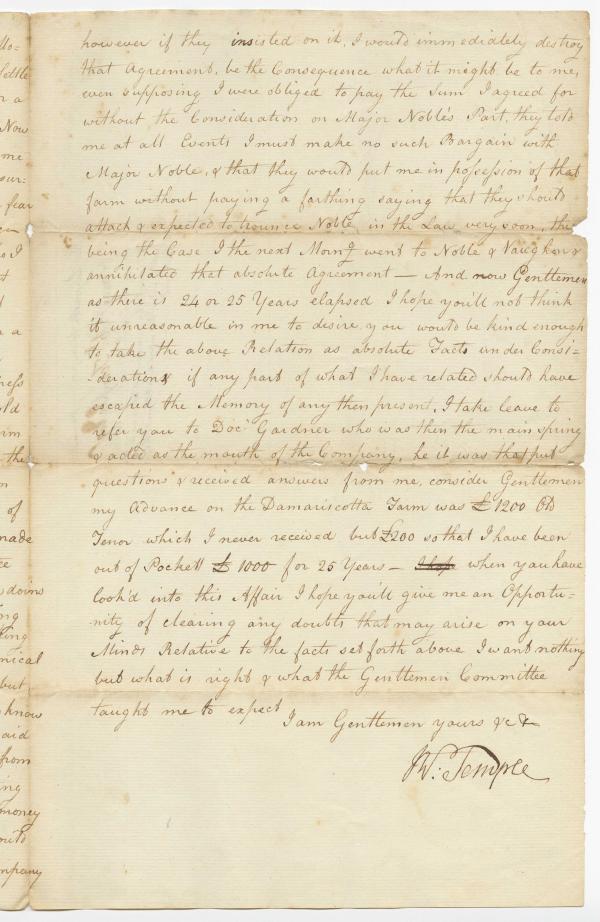 however if they insisted on it, I would immediately destroy
that Agreement, be the Consequence what it might be to me,
even supposing I were obliged to pay the Sum I agreed for
without the Consideration on Major Noble's Part, they told
me at all Events I must make no such Bargain with
Major Noble, & that they would put me in possession of that
farm without paying a farthing saying that they should
attack & expected to trounce Noble in the Law very soon, this
being the Case I the next Morng went to Noble & Vaughan &
annihilated that absolute Agreement — And now Gentlemen
as there is 24 or 25 Years elapsed I hope you'll not think
it unreasonable in me to desire you would be kind enough
to take the above Relation as absolute Facts under Consi=
:deration & if any part of what I have related should have
escaped the Memory of any then present, I take leave to
refer you to Docr Gardner who was then the main spring
& acted as the mouth of the Company, he it was that put
questions & received answers from me, consider Gentlemen
my Advance on the Damariscotta Farm was £1200 Old
Tenor which I never received but £200 so that I have been
out of Pockett £1000 for 25 Years — I hop when you have
look'd into this Affair I hope you'll give me an Opportu=
nity of clearing any doubts that may arise on your
Minds Relative to the facts set forth above I want nothing
but what is right & what the Gentlemen Committee
taught me to expect
I am Gentlemen yours &c &
Mo=
Now
me
sur=
fear
a
of
made
doing
but
know
said
from
money